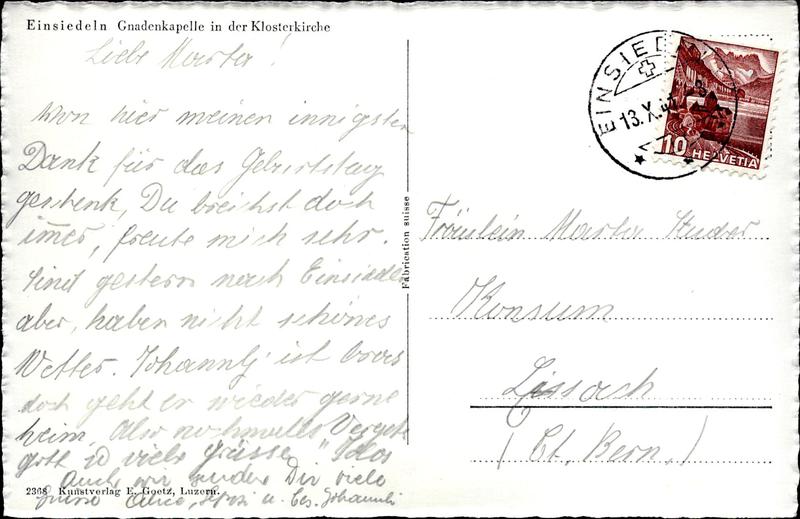 Einsiedeln Gnadenkapelle in der Klosterkirche
Liebe Martha!
Von hier meinen innigsten
Dank für das Geburtstag
geschenk, Du breichst doch
immer, freute mich sehr.
Sind gestern nach Einsiedeln
aber, haben nicht schönes
Wetter. Johannli ist brav
doch geht er wieder gerne
heim. Also nochmalls Vergelts
gott u viele Grüsse
Auch wir Dir viele
Grüsse Alice, u. Johannli
2368 Kunstverlag E. Goetz, Luzern.
Fabrication suisse
EINSIEDELN
13.X.
10 HELVETIA
Fräulein Martha Studer
Konsum
Lissach
(Ct. Bern.)